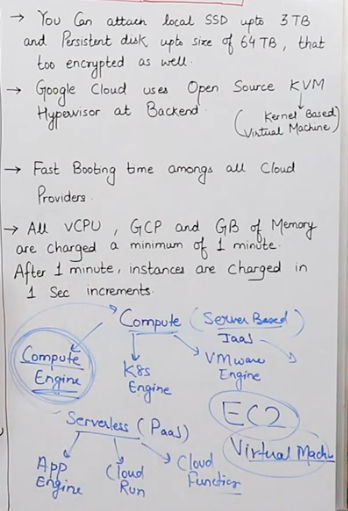 → You Can attach local SSD upto 3TB
and Persistent disk upto size of 64TB, that
too encrypted as well.
→ Google Cloud uses Open Source KVM
Hypervisor at Backend.
(Kernel Based
Virtual Machine)
→ Fast Booting time amongs all Cloud
Providers.
→ All VCPU, GCP and GB of Memory
are charged a minimum of 1 minute.
After 1 minute, instances are charged in
1 Sec increments.
Compute (Server Based)
IaaS
Compute
Engine
K8s
Engine
VMware
Engine
EC2
Serverless (PaaS)
Virtual Machi
App
Engine
Cloud
Run
Cloud
Function